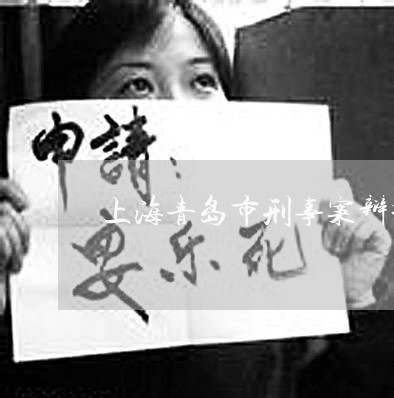 申請：
上海青岛市刑事案辩
安乐死